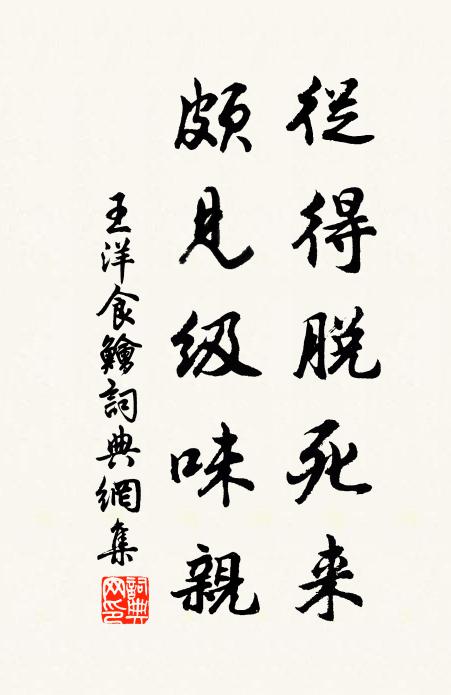 從得脱死来
頗見級味親
王洋食鱠詞典網集
詞典网印